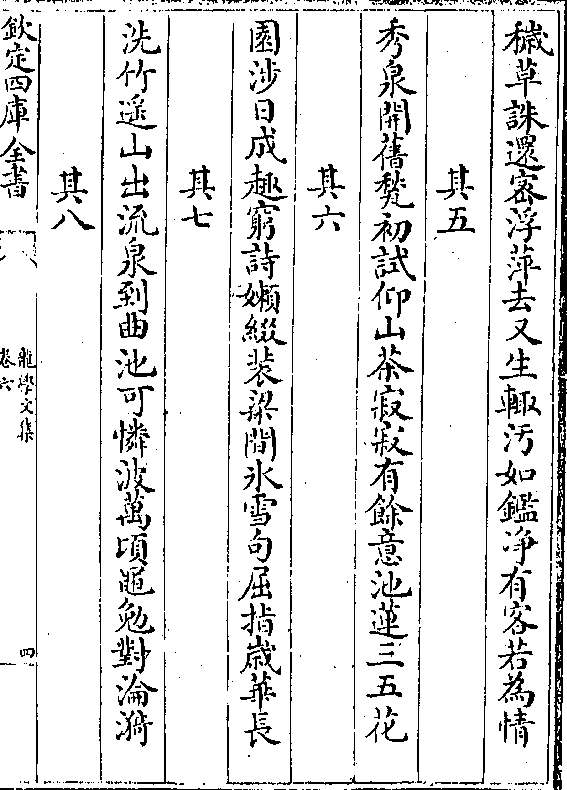 穢草誅還宻浮萍去又生輙汚如鑑净有客若為情
其五
秀泉開舊甃初試仰山茶寂寂有餘意池蓮三五花
其六
園涉日成趣窮詩嬾綴装梁間氷雪句屈指嵗華長
其七
洗竹遥山出流泉到曲池可憐波萬頃黽勉對淪漪
其八
欽定四庫全書
龍學文集
卷六
四